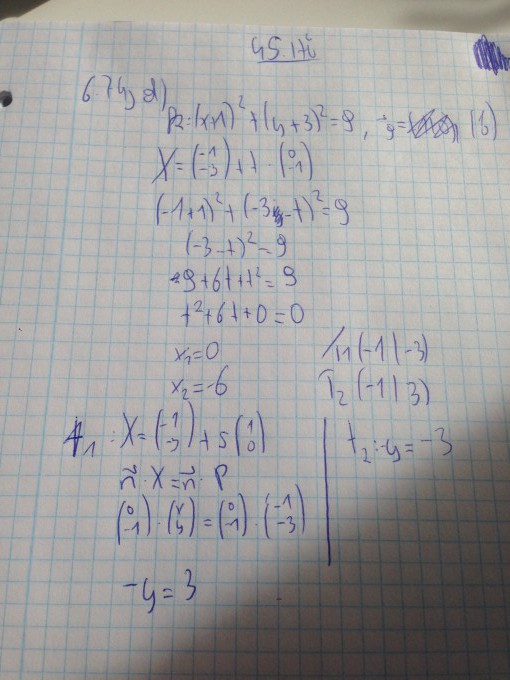 6.74, d)
k: (x+1)² + (y+3)² = 9, g=
X = (-1 -3) + t · (0 -1)
(-1+1)² + (-3-t)² = 9
(-3-t)² = 9
9+6t+t² = 9
t²+6t+0=0
x₁=0
x₂=-6
T1 (-1|-3)
T₂ (-1|3)
t₁ : X = (-1 -3) + s (1 0)
n · X = n · P
(0 -1) · (x y) = (0 -1) · (-1 -3)
-y = 3
t₂: -y = -3